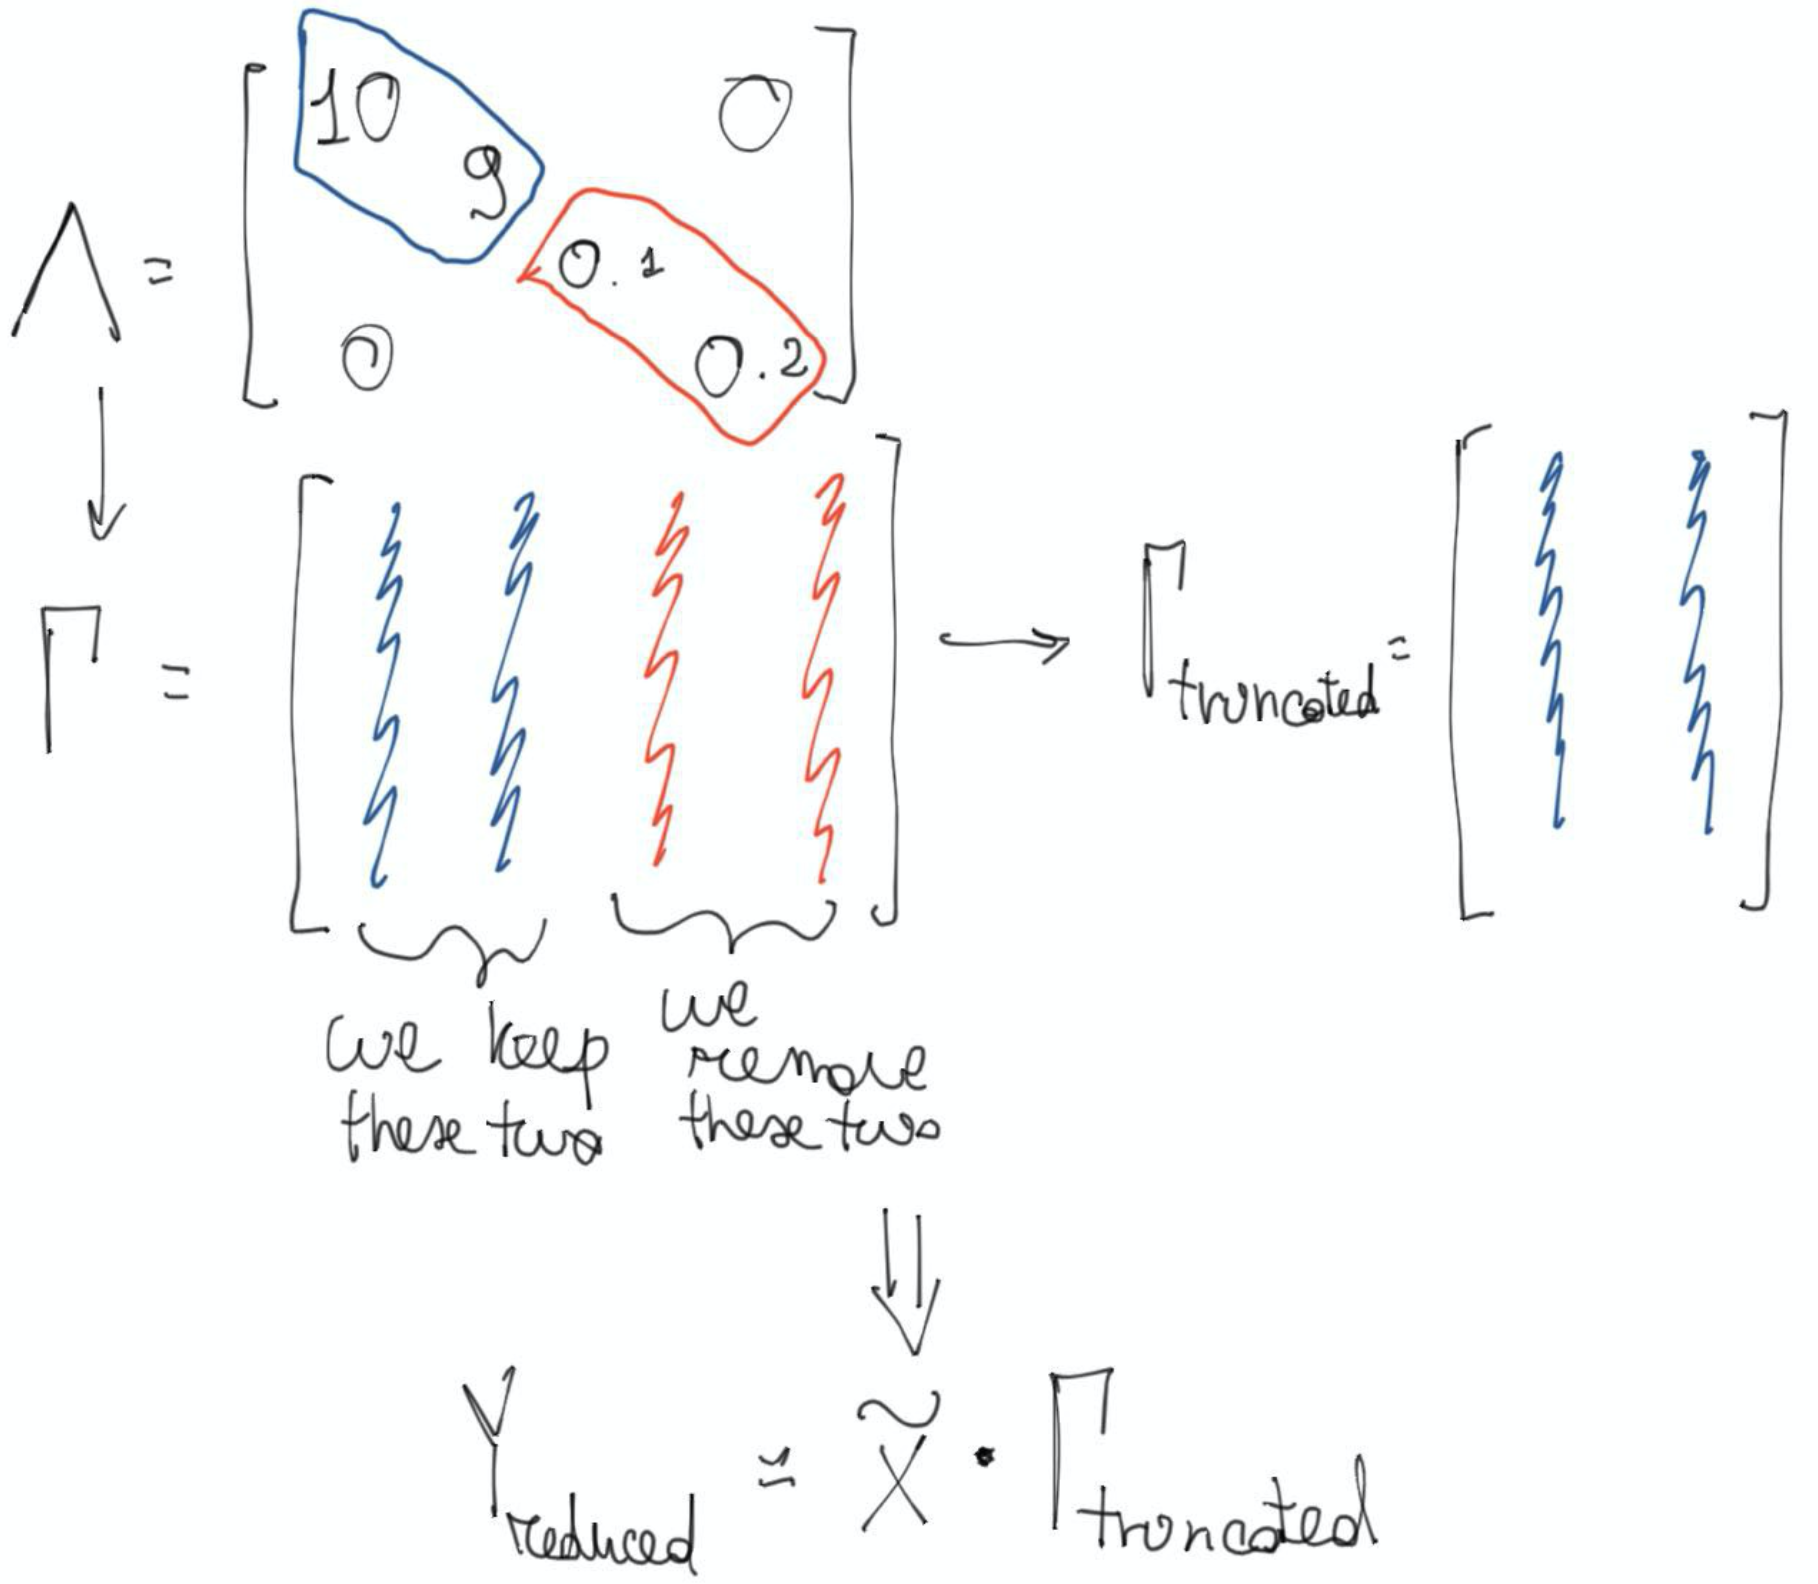 10 0
9
Λ =
0.1
0 0.2
Γ = → Γtruncated =
we keep we
these two remove
these two
Yreduced = X̃ · Γtruncated